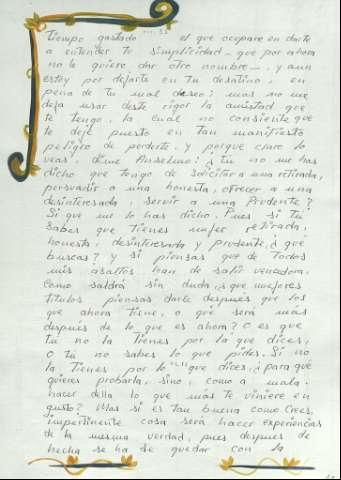 tiempo gastado el que ocupare en darte
a entender tu simplicidad - que por ahora
no le quiero dar otro nombre -, y aun
estoy por dejarte en tu desatino, en
pena de tu mal deseo; mas no me
deja usar deste rigor la amistad que
te tengo, la cual no consiente que
te deje puesto en tan manifiesto
peligro de perderte. Y porque claro lo
veas, dime Anselmo: ¿Tú no me has
dicho que tengo de solicitar a una retirada,
persuadir a una honesta, ofrecer a una
desinteresada, servir a una Prudente?
Sí que me lo has dicho. Pues si tú
sabes que tienes mujer retirada,
honesta, desinteresada y prudente, ¿qué
buscas? Y si piensas que de todos
mis asaltos, han de salir vencedora,
como saldrá sin duda, ¿qué mejores
títulos piensas darle después que los
que ahora tiene, o qué será más
después de lo que es ahora? O es que
tú no la tienes por la que dices,
o tú no sabes lo que pides. Si no
la tienes por lo que dices, ¿para qué
quieres probarla, sino, como a mala,
hacer della lo que más te viniere en
gusto? Mas si es tan buena como crees,
impertinente cosa será hacer experiencias
de la mesma verdad, pues después de
hecha se ha de quedar con la